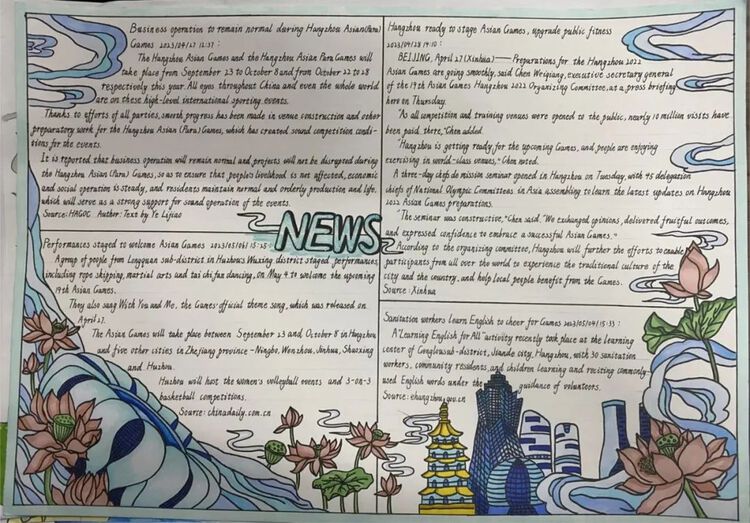 Business operation to remain normal during Hangzhou Asian (Para)
Games 2023/04/27 12:37:
The Hangzhou Asian Games and the Hangzhou Asian Para Games will
take place from September 23 to October 8 and from October 22 to 28
respectively this year. All eyes throughout China and even the whole world
are on these high-level international sporting events.
Thanks to efforts of all parties, smooth progress has been made in venue construction and other
preparatory work for the Hangzhou Asian (Para) Games, which has created sound competition condi-
tions for the events.
It is reported that business operation will remain normal and projects will not be disrupted during
the Hangzhou Asian (Para) Games, so as to ensure that people's livelihood is not affected, economic
and social operation is steady, and residents maintain normal and orderly production and life,
which will serve as a strong support for sound operation of the events.
Source: HAGOC Author: Text by Ye Lijiao
NEWS
Performances staged to welcome Asian Games 2023/05/06 15:25:
A group of people from Longquan sub-district in Huzhou's Wuxing district staged performances,
including rope skipping, martial arts and tai chi fan dancing, on May 4 to welcome the upcoming
19th Asian Games.
They also sang With You and Me, the Games' official theme song, which was released on
April 27.
The Asian Games will take place between September 23 and October 8 in Hangzhou
and five other cities in Zhejiang province - Ningbo, Wenzhou, Jinhua, Shaoxing
and Huzhou.
Huzhou will host the women's volleyball events and 3-on-3
basketball competitions.
Source: chinadaily.com.cn
Hangzhou ready to stage Asian Games, upgrade public fitness
2023/04/28 14:10:
BEIJING, April 27 (Xinhua) —— Preparations for the Hangzhou 2022
Asian Games are going smoothly, said Chen Weiqiang, executive secretary general
of the 19th Asian Games Hangzhou 2022 Organizing Committee, at a press briefing
here on Thursday.
"As all competition and training venues were opened to the public, nearly 10 million visits have
been paid there," Chen added.
"Hangzhou is getting ready for the upcoming Games, and people are enjoying
exercising in world-class venues," Chen noted.
A three-day chefs de mission seminar opened in Hangzhou on Tuesday, with 45 delegation
chiefs of National Olympic Committees in Asia assembling to learn the latest updates on Hangzhou
2022 Asian Games preparations.
"The seminar was constructive," Chen said. "We exchanged opinions, delivered fruitful outcomes,
and expressed confidence to embrace a successful Asian Games."
According to the organizing committee, Hangzhou will further the efforts to enable
participants from all over the world to experience the traditional culture of the
city and the country, and help local people benefit from the Games.
Source: Xinhua
Sanitation workers learn English to cheer for Games 2023/05/04/15:33:
A "Learning English for All" activity recently took place at the learning
center of Gonglou sub-district, Jiande city, Hangzhou, with 30 sanitation
workers, community residents, and children learning and reciting commonly-
used English words under the guidance of volunteers.
Source: ehangzhou.gov.cn